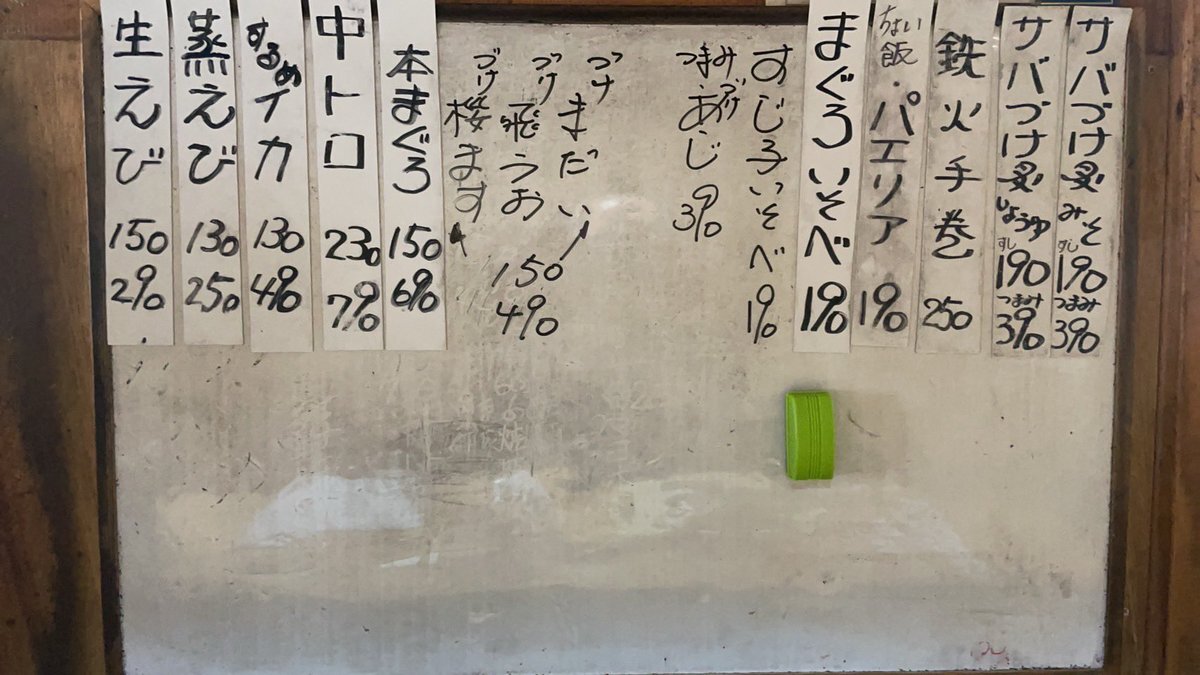 サバづけ炙みそ
すし190
つまみ390
サバづけ炙しょうゆ
すし190
つまみ390
鉄火手巻
250
ちょい飯・パエリア
190
まぐろいそべ
190
すじ子いそべ
190
つまみづけあじ
390
づけまだい
づけ飛うお
150
490
づけ桜ます
本まぐろ
150
690
中トロ
230
790
するめイカ
130
490
蒸えび
130
250
生えび
150
290